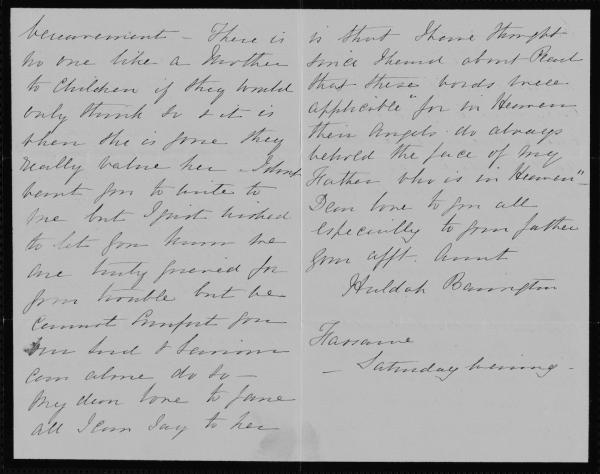 bereavement - There is
no one like a Mother
to Children if they would
only think so & it is
when she is gone they
really value her - I dont
want you to write to
me but I just wished
to let you know we
are truly grieved for
your trouble but we
cannot Comfort you
our Lord & Saviour
can alone do so -
My dear love to Jane
all I can say to her
is that I have thought
since I heard about Pearl
that these words were
applicable "for in Heaven
their Angels do always
behold the face of my
Father who is in Heaven" -
Dear love to you all
especially to your father
your afft. Aunt
Huldah Barrington
Fassaroe
- Saturday Evening -